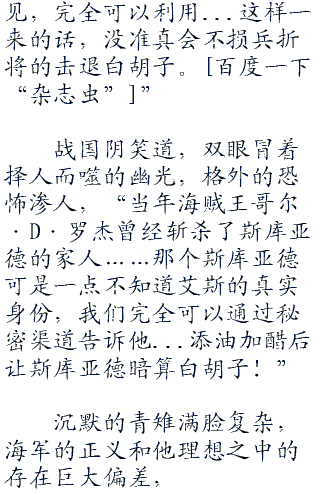 见，完全可以利用...这样一
来的话，没准真会不损兵折
将的击退白胡子。[百度一下
“杂志虫”]”
战国阴笑道，双眼冒着
择人而噬的幽光，格外的恐
怖渗人，“当年海贼王哥尔
·D·罗杰曾经斩杀了斯库亚
德的家人……那个斯库亚德
可是一点不知道艾斯的真实
身份，我们完全可以通过秘
密渠道告诉他...添油加醋后
让斯库亚德暗算白胡子！”
沉默的青雉满脸复杂，
海军的正义和他理想之中的
存在巨大偏差，